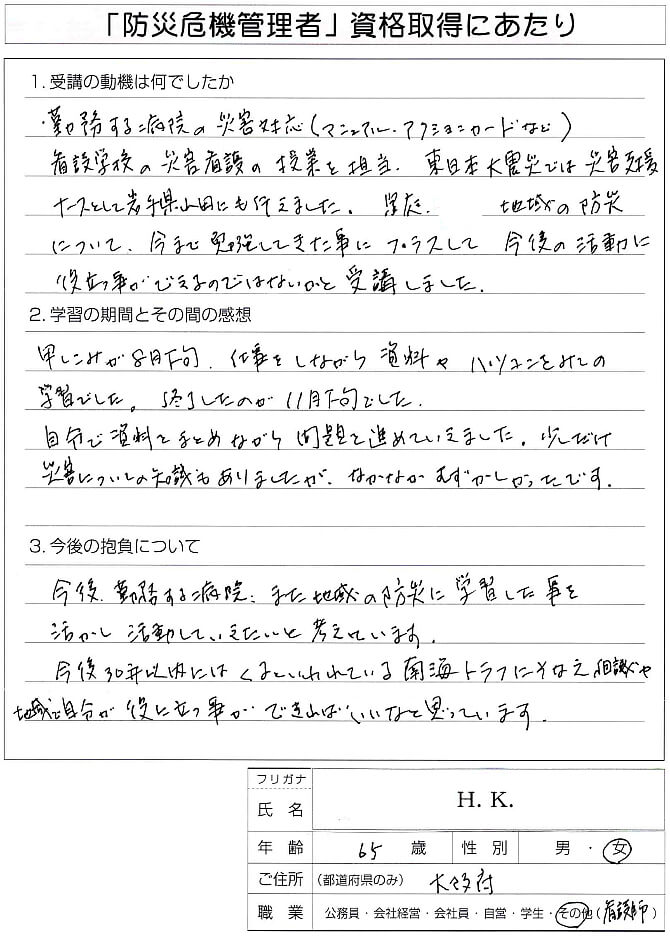 「防災危機管理者」資格取得にあたり
1. 受講の動機は何でしたか
・勤務する病院の災害対応(マニュアル・アクションカードなど)
看護学校の災害看護の授業を担当. 東日本大震災では災害支援
ナースとして岩手県山田にも行えました。 家庭. 地域の防災
について、今まで勉強してきた事にプラスして 今後の活動に
役立つ事ができるのではないかと受講しました.
2. 学習の期間とその間の感想
申しこみが8月下旬. 仕事をしながら 資料や パソコンをみての
学習でした。 終了したのが 11月下旬でした.
自分で資料をまとめながら 問題を進めていきました。少しだけ
災害についての知識もありましたが、なかなかむずかしかったです.
3. 今後の抱負について
今後. 勤務する病院、また地域の防災に学習した事を
活かし 活動していきたいと考えています.
今後30年以内には くるといわれている 南海トラフにそなえ, 職場や
地域で自分が 役に立つ事が できればいいなと思っています.
フリガナ
氏名 H. K.
年齢 65 歳 性別 男・女
ご住所 (都道府県のみ) 大阪府
職業 公務員・会社経営・会社員・自営・学生・その他(看護師)